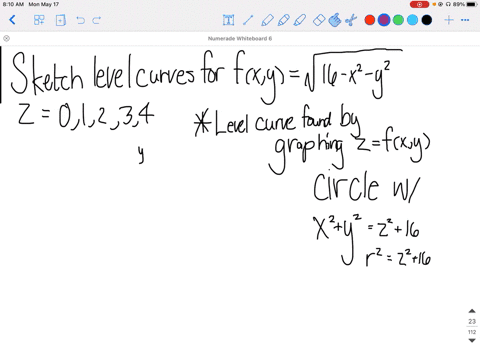 8:10 AM Mon May 17
89%
Numerade Whiteboard 6
Sketch level curves for f(x,y) = √16-x²-y²
z = 0,1,2,3,4
* Level curve found by
graphing z=f(x,y)
y
circle w/
x²+y² = z²+16
r² = z²+16
23
112